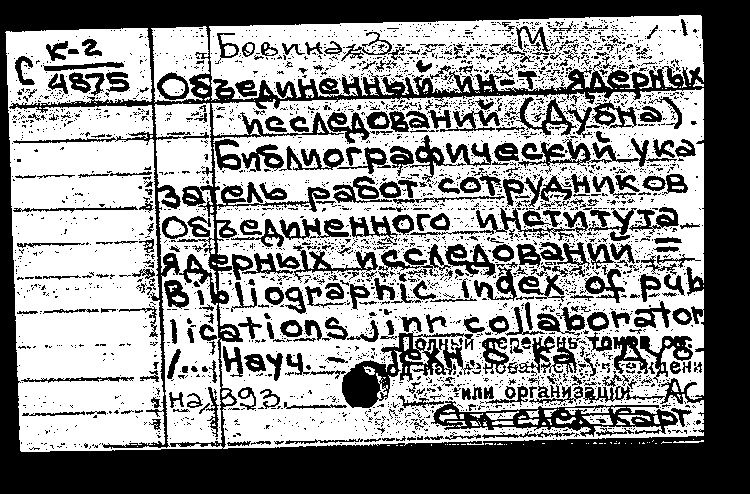 С К-2
4875
Бовина, З М 1.
Объединенный ин-т ядерных
исследований (Дубна).
Библиографический ука-
затель работ сотрудников
Объединенного института
ядерных исследований =
Bibliographic index of pub
lications jinr collaborator
/... Науч. - техн б-ка Дуб-
Полный перечень томов см.
под наименованием учреждени
на, 1993.
или организации. АС
См след. карт.